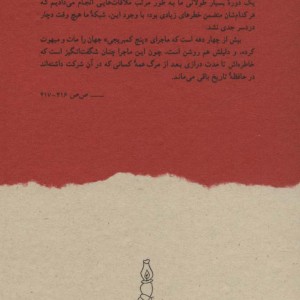 یک دورۀ بسیار طولانی ما به طور مرتب ملاقات‌هایی انجام می‌دادیم که
هر کدامشان متضمن خطرهای زیادی بود، با وجود این، شبکۀ ما هیچ وقت دچار
دردسر جدی نشد.»
بیش از چهار دهه است که ماجرای «پنج کمبریجی» جهان را مات و مبهوت
کرده، و دلیلش هم روشن است. چون این ماجرا چنان شگفت‌انگیز است که
خاطره‌اش تا مدت درازی بعد از مرگ همۀ کسانی که در آن شرکت داشته‌اند
در حافظۀ تاریخ باقی می‌ماند.
—— صص ۲۱۶-۲۱۷